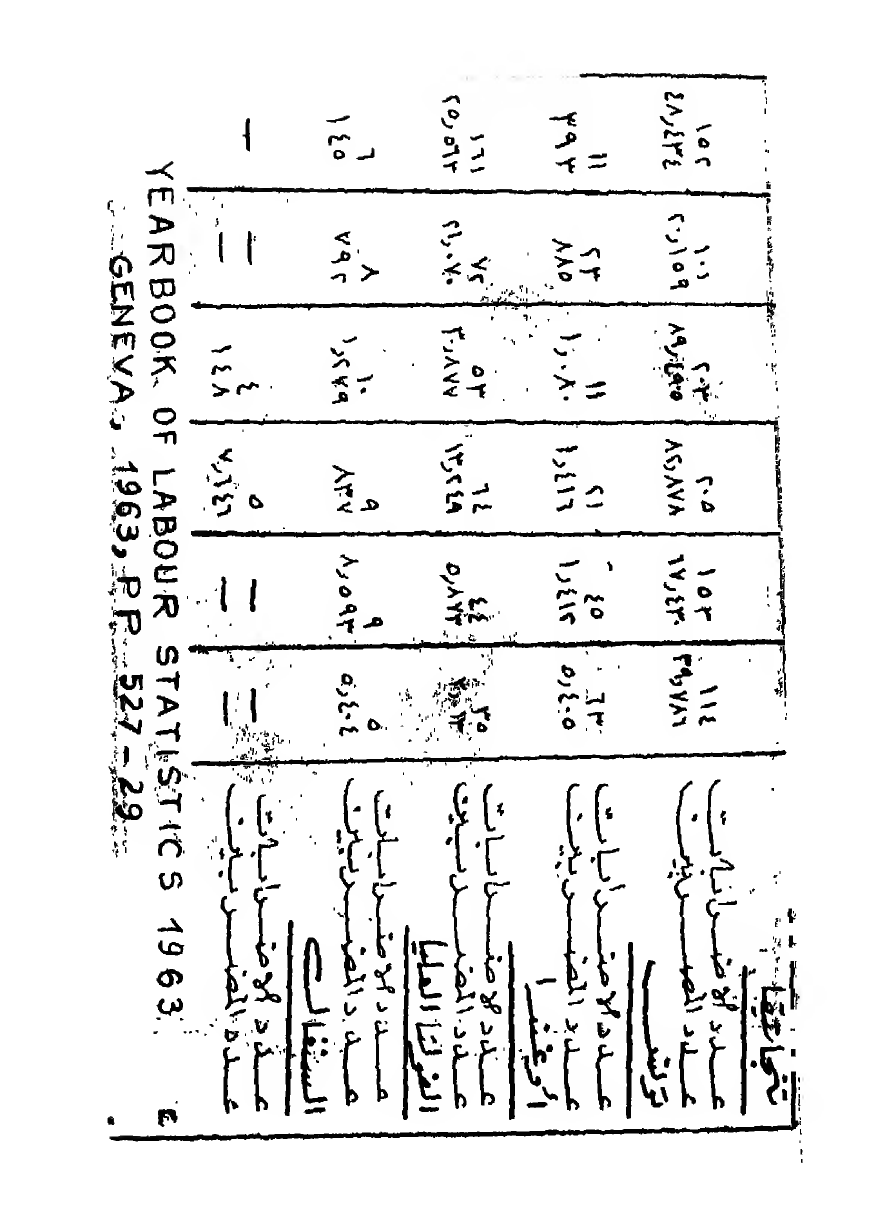 تنجانيقا
عدد الاضرابات ١١٤ ١٥٣ ٢٠٥ ٢٠٣ ١٠١ ١٥٢
عدد المضربين ٣٩,٧٨٦ ٦٧,٤٣٠ ٨٢,٨٧٨ ٨٩,٤٩٥ ٢٠,١٥٩ ٤٨,٤٣٤
تونس
عدد الاضرابات ٦٣ ٤٥ ٢١ ١١ ٢٣ ١١
عدد المضربين ٥,٤٠٥ ١,٤١٢ ٤,٤١٦ ١,٠٨٠ ٨٨٥ ٣٩٣
أوغندا
عدد الاضرابات ٣٥ ٤٤ ٦٤ ٥٣ ٧٢ ١٦١
عدد المضربين ٥,٨٧٣ ١٣,٢٤٩ ٣,٨٧٧ ٢١,٠٧٠ ٢٥,٥٦٣
الفولتا العليا
عدد الاضرابات ٥ ٩ ٩ ١٠ ٨ ٦
عدد المضربين ٥,٤٠٤ ٨,٥٩٣ ٨٣٧ ١,٢٧٩ ٧٩٢ ١٤٥
السنغال
عدد الاضرابات — — ٥ ٤ — —
عدد المضربين — — ٧,٦٤٦ ١٤٨ —
YEARBOOK OF LABOUR STATISTICS 1963
GENEVA, 1963, PP 527-29